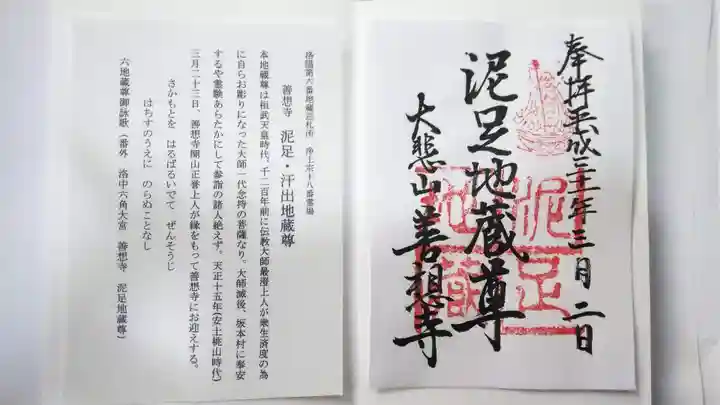 奉拝 平成三十一年 三月 二日
泥足地蔵尊
大悲山 善想寺
泥足
地蔵
洛陽第六番地蔵巡札所 浄土宗十八番霊場
善想寺 泥足・汗出地蔵尊
本地蔵尊は桓武天皇時代、千二百年前に伝教大師最澄上人が衆生済度の為
に自らお彫りになった大師一代念持の菩薩なり。大師滅後、坂本村に奉安
するや霊験あらたかにして参詣の諸人絶えず。天正十五年(安土桃山時代)
三月二十三日、善想寺開山正誉上人が縁をもって善想寺にお迎えする。
さかもとを はるばるいでて ぜんそうじ
はちすのうえに のらぬことなし
六地蔵尊御詠歌(番外 洛中六角大宮 善想寺 泥足地蔵尊)